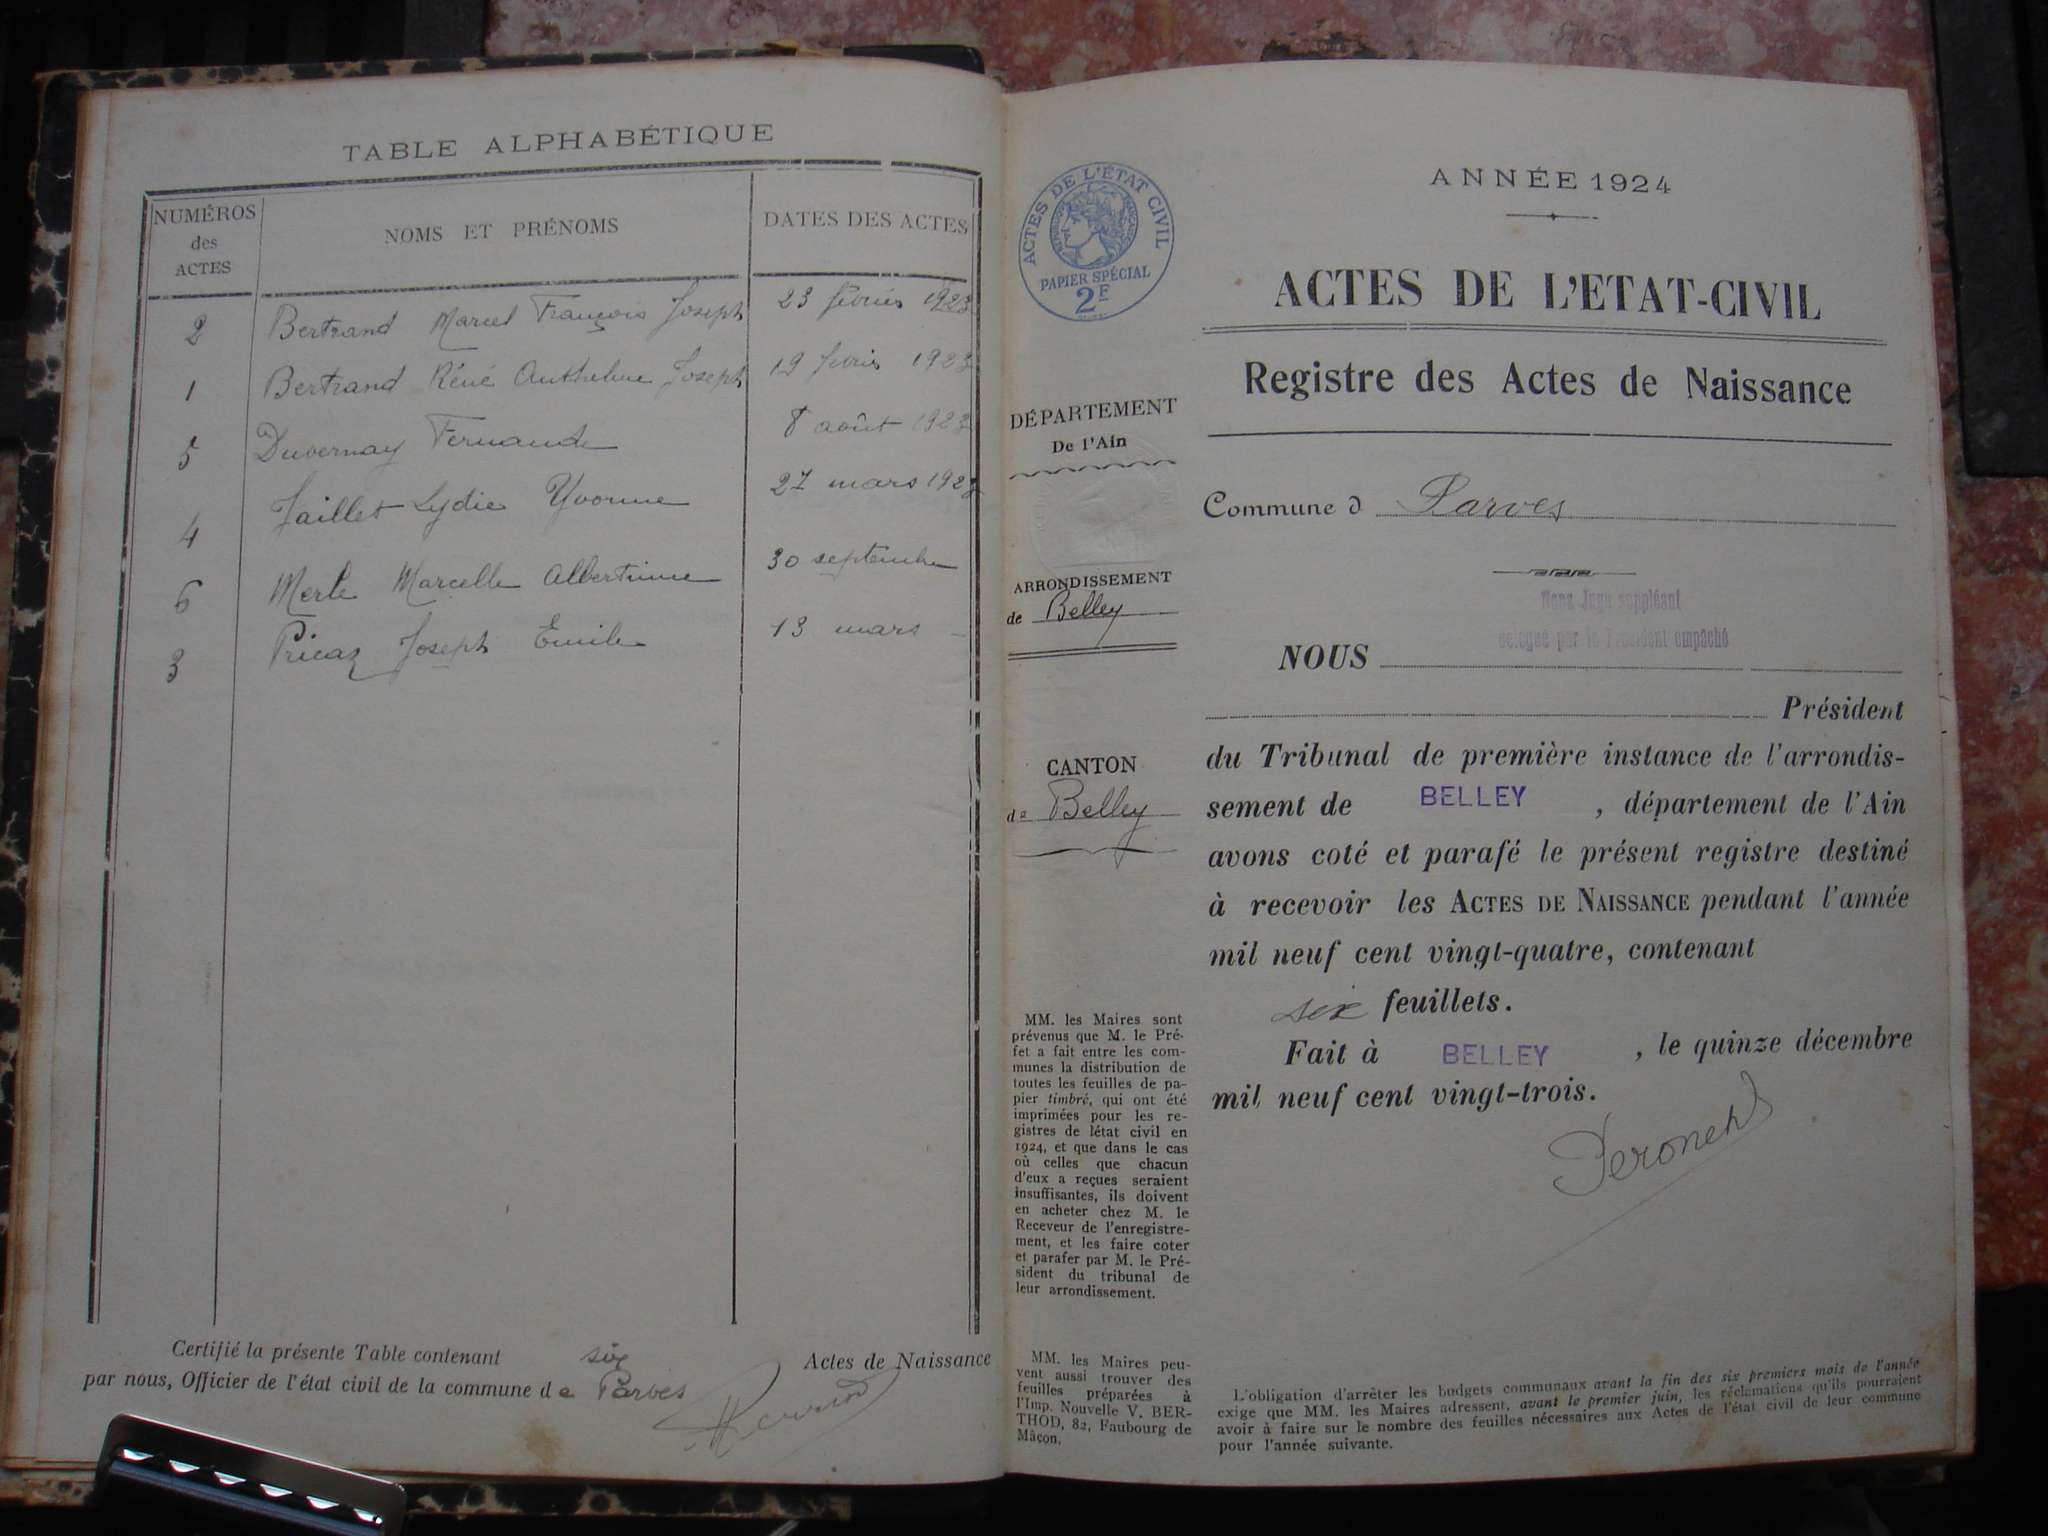 TABLE ALPHABÉTIQUE
NUMÉROS des ACTES
NOMS ET PRÉNOMS
DATES DES ACTES
2 Bertrand Marcel François Joseph 23 février 1923
1 Bertrand Réné Anthelme Joseph 19 février 1923
5 Duvernay Fernande 8 août 1923
4 Jaillet Lydie Yvonne 27 mars 1923
6 Merle Marcelle Albertinne 30 septembre
3 Pricaz Joseph Emile 13 mars
Certifié la présente Table contenant six Actes de Naissance
par nous, Officier de l'état civil de la commune de Parves
ACTES DE L'ÉTAT CIVIL
RÉPUBLIQUE FRANÇAISE
PAPIER SPÉCIAL
2F
DÉPARTEMENT
De l'Ain
ARRONDISSEMENT
de Belley
CANTON
de Belley
MM. les Maires sont
prévenus que M. le Pré-
fet a fait entre les com-
munes la distribution de
toutes les feuilles de pa-
pier timbré, qui ont été
imprimées pour les re-
gistres de létat civil en
1924, et que dans le cas
où celles que chacun
d'eux a reçues seraient
insuffisantes, ils doivent
en acheter chez M. le
Receveur de l'enregistre-
ment, et les faire coter
et parafer par M. le Pré-
sident du tribunal de
leur arrondissement.
MM. les Maires peu-
vent aussi trouver des
feuilles préparées à
l'Imp. Nouvelle V. BER-
THOD, 82, Faubourg de
Mâcon.
ANNÉE 1924
ACTES DE L'ETAT-CIVIL
Registre des Actes de Naissance
Commune d Parves
Nous Juge suppléant
délégué par le Président empêché
NOUS
Président
du Tribunal de première instance de l'arrondis-
sement de BELLEY, département de l'Ain
avons coté et parafé le présent registre destiné
à recevoir les ACTES DE NAISSANCE pendant l'année
mil neuf cent vingt-quatre, contenant
six feuillets.
Fait à BELLEY, le quinze décembre
mil neuf cent vingt-trois.
L'obligation d'arrêter les budgets communaux avant la fin des six premiers mois de l'année
exige que MM. les Maires adressent, avant le premier juin, les réclamations qu'ils pourraient
avoir à faire sur le nombre des feuilles nécessaires aux Actes de l'état civil de leur commune
pour l'année suivante.